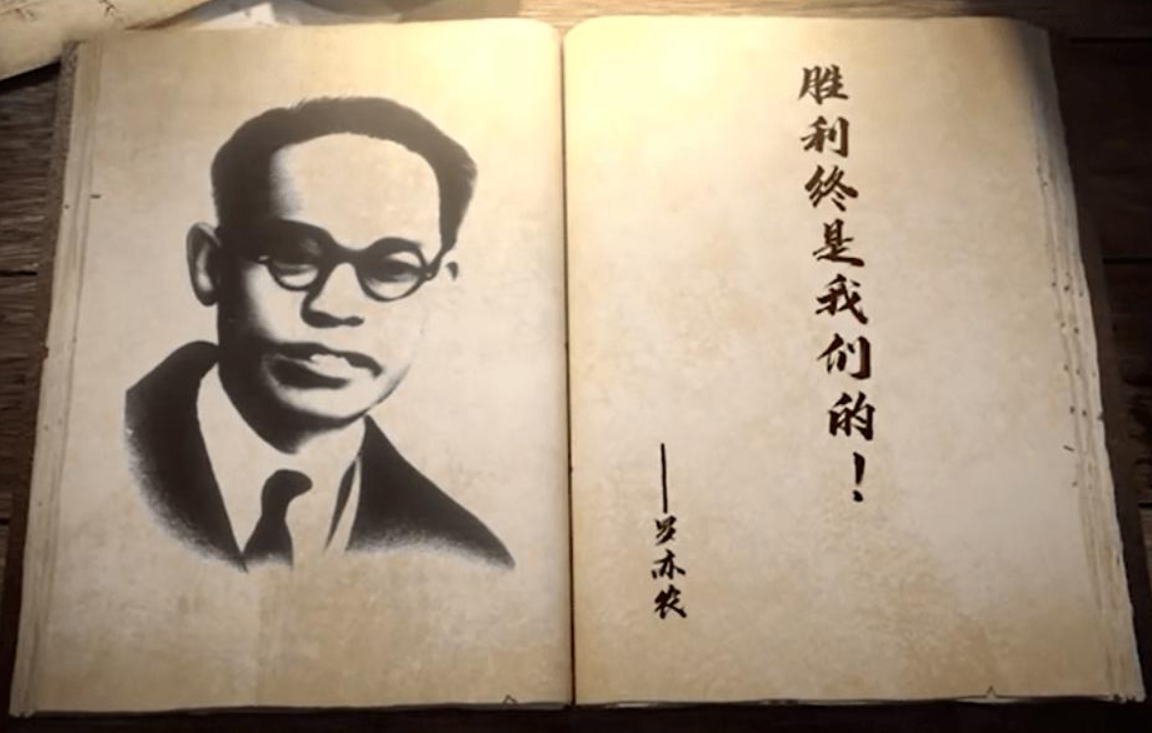 胜利终是我们的！
——罗亦农